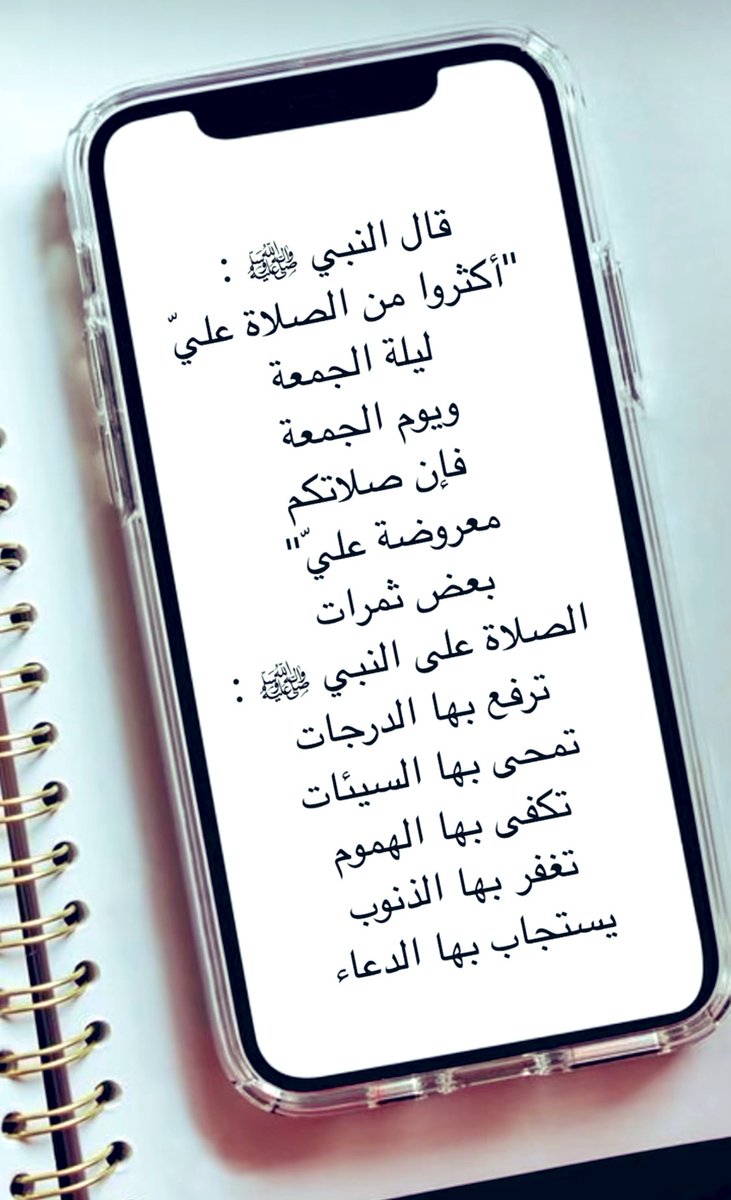 قال النبي ﷺ :
"أكثروا من الصلاة عليّ
ليلة الجمعة
ويوم الجمعة
فإن صلاتكم
معروضة عليّ"
بعض ثمرات
الصلاة على النبي ﷺ :
ترفع بها الدرجات
تمحى بها السيئات
تكفى بها الهموم
تغفر بها الذنوب
يستجاب بها الدعاء